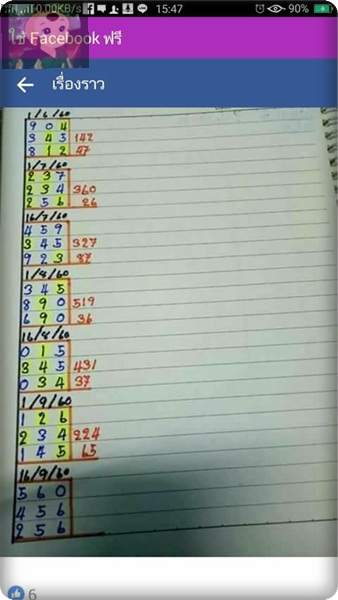 0.00KB/s 15:47 90%
ใช้ Facebook ฟรี
เรื่องราว
1/6/60
9 0 4
3 4 5 142
8 1 2 47
1/7/60
2 3 7
2 3 4 360
2 5 6 26
16/7/60
4 5 9
3 4 5 327
9 2 3 87
1/8/60
3 4 5
8 9 0 519
6 9 0 36
16/8/60
0 1 5
3 4 5 431
0 3 4 37
1/9/60
1 2 6
2 3 4 224
1 4 5 65
16/9/60
5 6 0
4 5 6
2 5 6
6